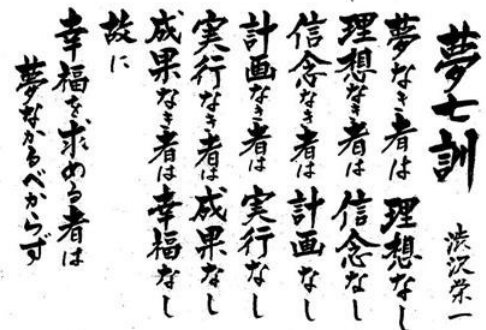 夢七訓
渋沢栄一
夢なき者は理想なし
理想なき者は信念なし
信念なき者は計画なし
計画なき者は実行なし
実行なき者は成果なし
成果なき者は幸福なし
故に
幸福を求める者は
夢なかるべからず